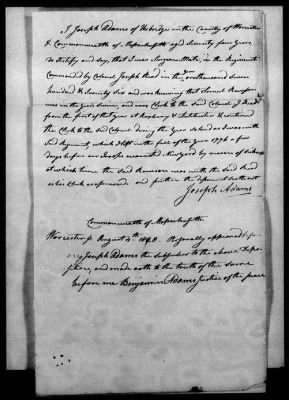 I Joseph Adams of Uxbridge in the County of Worcester
& Commonwealth of Massachusetts aged Seventy four years
do Testify and say, that I was Surgeons Mate, in the Regiment
Commanded by Colonel Joseph Read in the year one thousand seven
hundred & Seventy Six and was knowing that Samuel Rawson
was in the years service, and was Clerk to the said Colonel J Read
from the first of that year at Roxbury & Dorchester & continued
the Clerk to the said Colonel during the year as long as I was with
said Regiment, which I left in the fall of the year 1776 a few
days before our Troops evacuated New York by means of sickness
at which time the said Rawson was with the said Read
as his Clerk as aforesaid. and further the deponent saith not
Joseph Adams
Commonwealth of Massachusetts
Worcester ss August 4th Personally appeared
Joseph Adams the Subscriber to the above
and made oath to the truth of the same
before me Benjamin Adams Justice of the peace